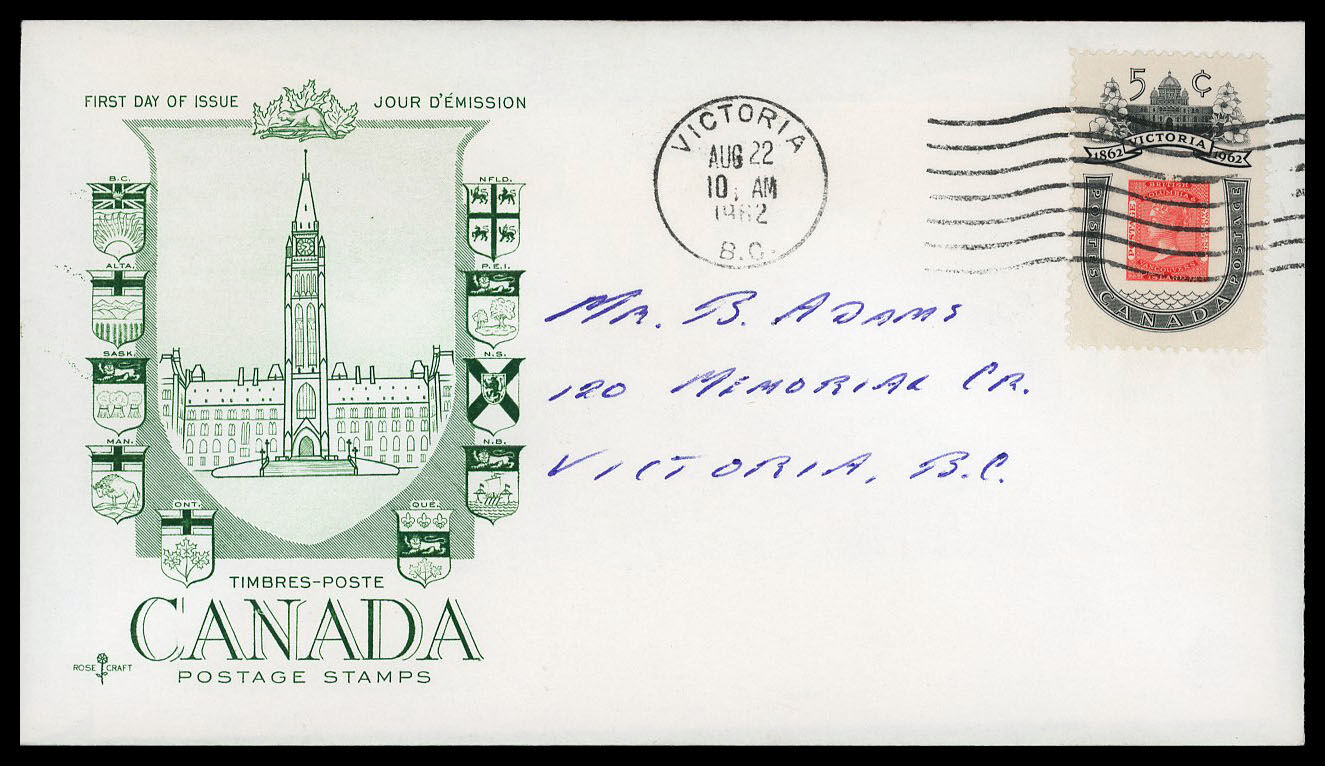 FIRST DAY OF ISSUE JOUR D'ÉMISSION
B.C.
ALTA.
SASK.
MAN.
ONT.
NFLD.
P.E.I.
N.S.
N.B.
QUÉ.
TIMBRES-POSTE
CANADA
POSTAGE STAMPS
ROSE CRAFT
VICTORIA
AUG 22
10 AM
1962
B.C.
5 ¢
1862 VICTORIA 1962
POSTES CANADA POSTAGE
BRITISH
COLUMBIA
POSTAGE
VANCOUVERS
ISLAND
Mr. B. Adams
120 Memorial Cr.
Victoria, B.C.